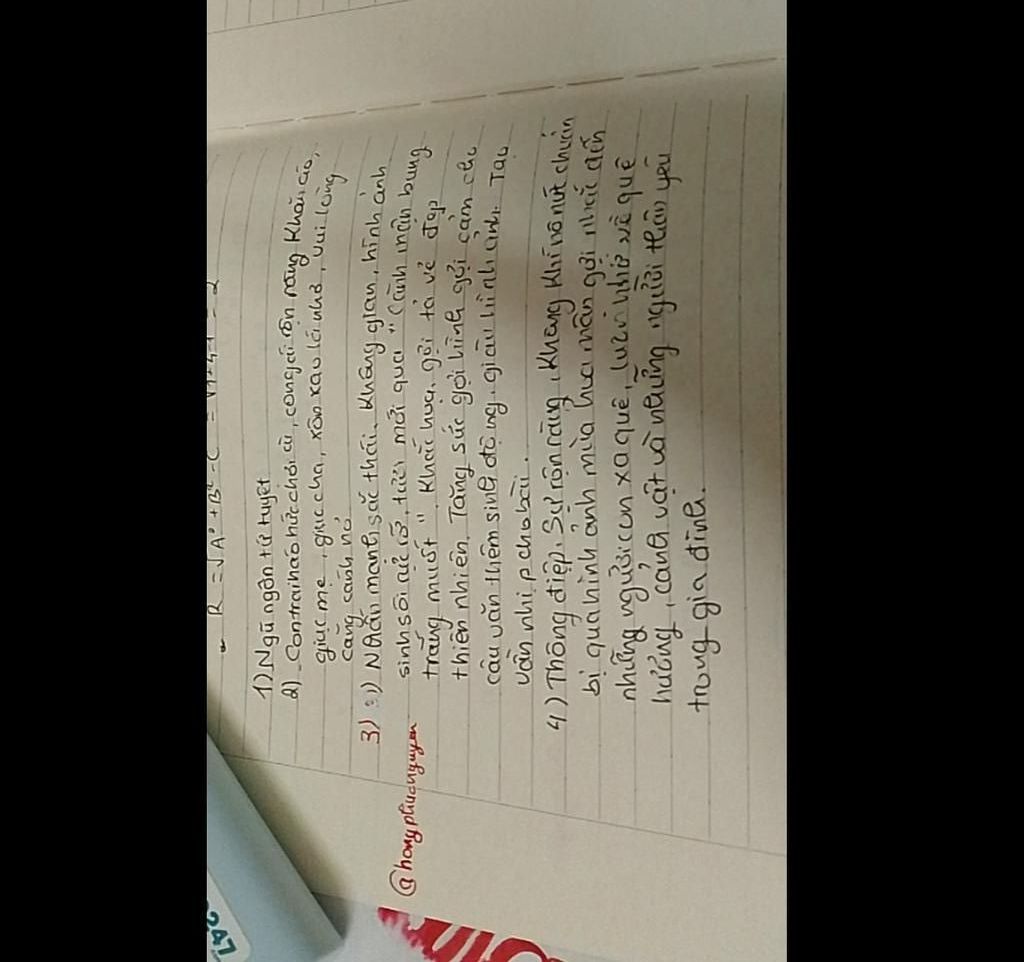 R = √A²+B²-C =
1) Ngũ ngôn tứ tuyệt
2) - Con trai háo hức chơi cù, con gái rộn ràng khăn áo,
giục mẹ, giục cha, xôn xao lời nhỏ, vui lòng
căng cành nỏ
3) Nhấn mạnh sắc thái, không gian, hình ảnh
sinh sôi nảy nở, tươi mới qua " Cành mận bung
trắng muốt " Khắc họa, gợi tả vẻ đẹp
thiên nhiên. Tăng sức gợi hình gợi cảm cho
câu văn thêm sinh động, giàu hình ảnh. Tạo
vần nhịp cho bài.
4) Thông điệp: Sự rộn ràng, không khí nô nức chuẩn
bị qua hình ảnh mùa hoa mận gợi nhắc đến
những người con xa quê, luôn nhớ về quê
hương, cảnh vật và những người thân yêu
trong gia đình.
@hongphucnguyen
247